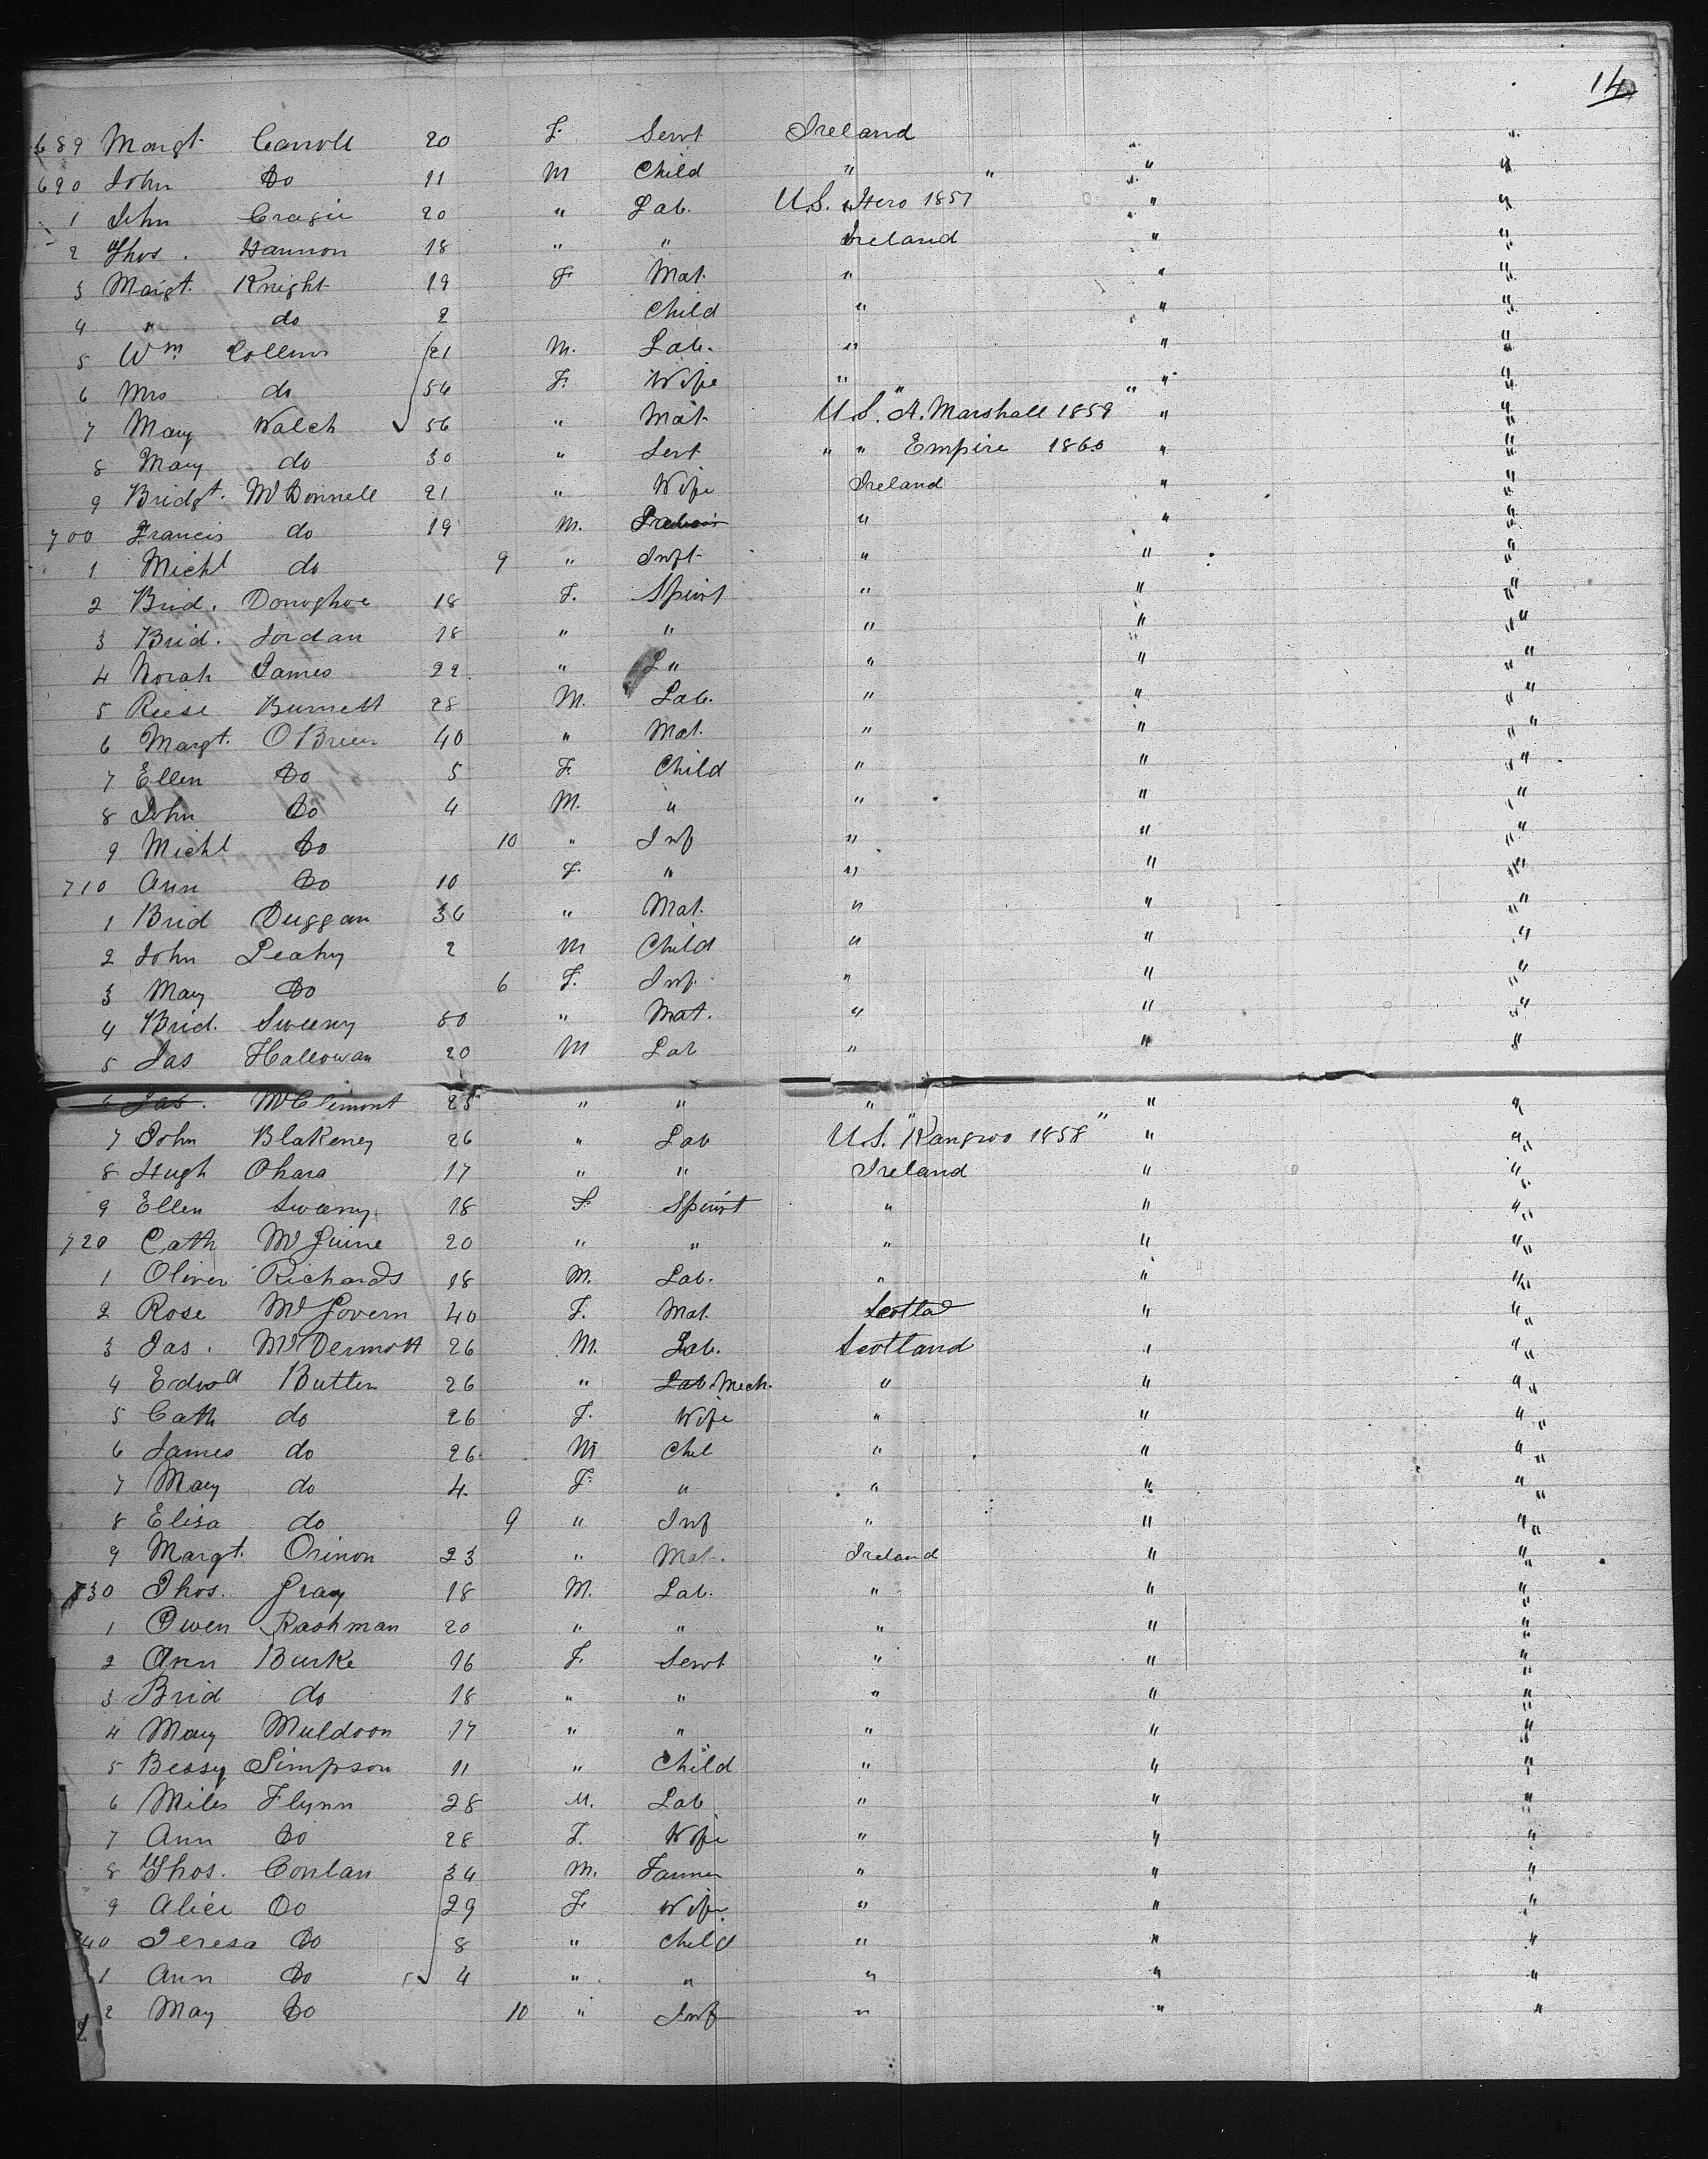 14
689 Margt Carroll 20 F. Servt Ireland "
690 John Do 11 M Child " " " "
1 John Cragie 20 " Lab. U.S. Hero 1857 " "
2 Thos. Hannon 18 " " Ireland " "
3 Margt. Knight 19 F Mat. " " "
4 " do 2 Child " " "
5 Wm Collins 21 M. Lab. " " "
6 Mrs do 56 F. Wife " " "
7 Mary Walch 56 " Mat. U.S. "A. Marshall 1859" " "
8 Mary do 30 " Sert " " Empire 1860 " "
9 Bridgt. McDonnell 21 " Wife Ireland " "
700 Francis do 19 M. " " "
1 Michl do 9 " Inft " " "
2 Brid. Donoghoe 18 F. Spinst " " "
3 Brid. Jordan 18 " " " " "
4 Norah James 22 " " " " "
5 Reese Burnett 28 M. Lab. " " "
6 Margt. OBrien 40 " Mat. " " "
7 Ellen Do 5 F. Child " " "
8 John Do 4 M. " " " "
9 Michl Do 10 " Inf " " "
710 Ann Do 10 F. " " " "
1 Brid Duggan 36 " Mat. " " "
2 John Leahy 2 M Child " " "
3 Mary Do 6 F. Inf. " " "
4 Brid. Sweeny 80 " Mat. " " "
5 Jas Hallowan 20 M Lab " " "
6 Jas. McClimont 25 " " " " "
7 John Blakeney 26 " Lab U.S. "Kangroo 1858" " "
8 Hugh Ohara 17 " " Ireland " "
9 Ellen Sweeny 18 F Spinst " " "
720 Cath McGuine 20 " " " " "
1 Oliver Richards 18 M. Lab. " " "
2 Rose McGovern 40 F. Mat. Scotlad " "
3 Jas. McDermott 26 M. Lab. Scotland " "
4 Edwd Butler 26 " Lab. Mech. " " "
5 Cath do 26 F. Wife " " "
6 James do 26 M Chil " " "
7 Mary do 4 F. " " " "
8 Elisa do 9 " Inf " " "
9 Margt. Orinon 23 " Mat. Ireland " "
730 Thos. Gray 18 M. Lab. " " "
1 Owen Rashman 20 " " " " "
2 Ann Burke 16 F. Servt " " "
3 Brid do 18 " " " " "
4 Mary Muldoon 17 " " " " "
5 Bessy Simpson 11 " Child " " "
6 Miles Flynn 28 M. Lab " " "
7 Ann Do 28 F. Wife " " "
8 Thos. Conlan 34 M. Farmer " " "
9 Alice Do 29 F Wife " " "
40 Teresa Do 8 " Child " " "
1 Ann Do 4 " " " " "
2 May Do 10 " Inf " " "